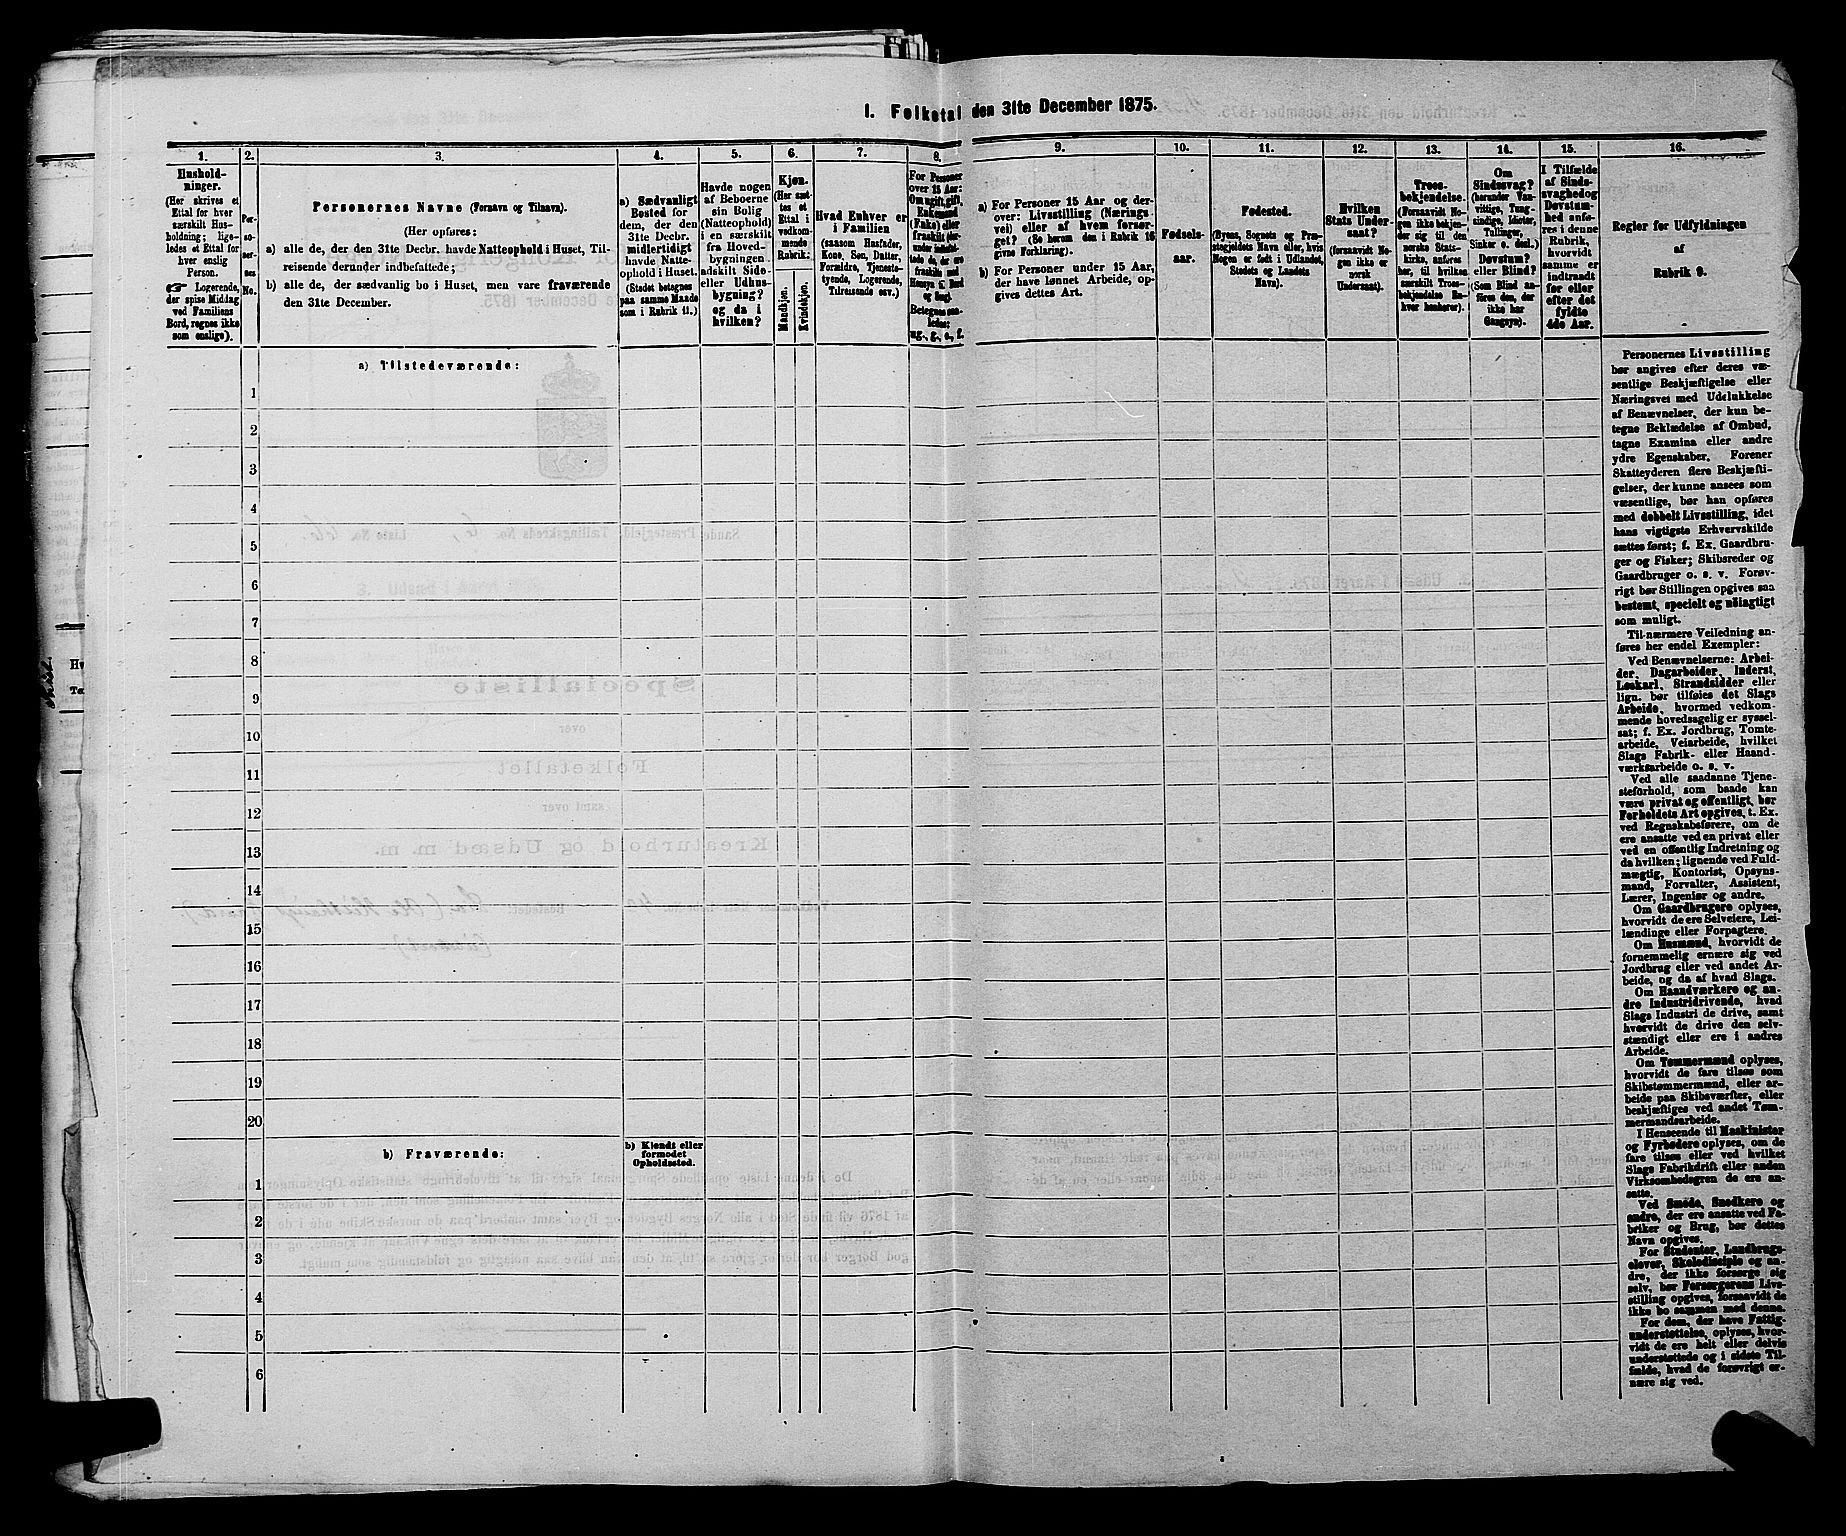 I. Folketal den 31te December 1875.
1. 2. 3. 4. 5. 6. 7. 8. 9. 10. 11. 12. 13. 14. 15. 16.
Hushold-
ninger.
(Her skrives et
Ettal for hver
særskilt Hus-
holdning; lige-
ledes et Ettal for
hver enslig
Person.
Logerende,
der spise Middag
ved Familiens
Bord, regnes ikke
som enslige).
Per-
so-
ner-
nes
No.
Personernes Navne (Fornavn og Tilnavn).
(Her opføres:
a) alle de, der den 31te Decbr. havde Natteophold i Huset, Til-
reisende derunder indbefattede;
b) alle de, der sædvanlig bo i Huset, men vare fraværende
den 31te December.
a) Sædvanligt
Bosted for
dem, der den
31te Decbr.
midlertidigt
havde Natte-
ophold i Huset.
(Stedet betegnes
paa samme Maade
som i Rubrik 11.)
Havde nogen
af Beboerne
sin Bolig
(Natteophold)
i en særskilt
fra Hoved-
bygningen
adskilt Side-
eller Udhus-
bygning?
og da i
hvilken?
Kjøn.
(Her sæt-
tes et
Ettal i
vedkom-
mende
Rubrik.)
Mandkjøn.
Kvindekjøn.
Hvad Enhver er
i Familien
(saasom Husfader,
Kone, Søn, Datter,
Forældre, Tjeneste-
tyende, Logerende,
Tilreisende osv.)
For Personer
over 15 Aar:
Om ugift, gift,
Enkemand
(Enke) eller
fraskilt
Betegnes saa-
ledes:
ug., g., e., f.
a) For Personer 15 Aar og der-
over: Livsstilling (Nærings-
vei) eller af hvem forsør-
get? (Se herom den i Rubrik 16
givne Forklaring).
b) For Personer under 15 Aar,
der have lønnet Arbeide, op-
gives dettes Art.
Fødsels-
aar.
Fødested.
(Byens, Sognets og Præ-
stegjeldets Navn eller, hvis
Nogen er født i Udlandet,
Stedets og Landets
Navn).
Hvilken
Stats Under-
saat?
(forsaavidt No-
gen ikke er
norsk
Undersaat).
Troes-
bekjendelse.
(Forsaavidt No-
gen ikke bekjen-
der sig til den
norske Stats-
kirke, anføres
her, til hvilken
særskilt Troes-
bekjendelse En-
hver henhører).
Om
Sindssvag?
(herunder Van-
vittige, Tung-
sindige, Idioter,
Tullinger,
Sinker o. desl.)
Døvstum?
eller Blind?
(Som Blind an-
føres den, der
ikke har
Gangsyn).
I Tilfælde
af Sinds-
svaghed og
Døvstum-
hed anfø-
res i denne
Rubrik,
hvorvidt
samme er
indtraadt
før eller
efter det
fyldte
4de Aar.
Regler for Udfyldningen
af
Rubrik 9.
a) Tilstedeværende:
1
2
3
4
5
6
7
8
9
10
11
12
13
14
15
16
17
18
19
20
b) Fraværende:
b) Kjendt eller
formodet
Opholdssted.
1
2
3
4
5
6
Personernes Livsstilling
bør angives efter deres væ-
sentlige Beskjæftigelse eller
Næringsvei med Udelukkelse
af Benævnelser, der kun be-
tegne Beklædelse af Ombud,
tagne Examina eller andre
ydre Egenskaber. Forener
Skatteyderen flere Beskjæfti-
gelser, der kunne ansees som
væsentlige, bør han opføres
med dobbelt Livsstilling, idet
hans vigtigste Erhvervskilde
sættes først; f. Ex. Gaardbru-
ger og Fisker; Skibsreder og
Gaardbruger o. s. v. Forøv-
rigt bør Stillingen opgives saa
bestemt, specielt og nøiagtigt
som muligt.
Til nærmere Veiledning an-
føres her endel Exempler:
Ved Benævnelserne: Arbei-
der, Dagarbeider, Inderst,
Løskarl, Strandsidder eller
lign. bør tilføies det Slags
Arbeide, hvormed vedkom-
mende hovedsagelig er syssel-
sat; f. Ex. Jordbrug, Tomte-
arbeide, Veiarbeide, hvilket
Slags Fabrik- eller Haand-
værksarbeide o. s. v.
Ved alle saadanne Tjene-
steforhold, som baade kan
være privat og offentligt, bør
Forholdets Art opgives, t. Ex.
ved Regnskabsførere, om de
ere ansatte ved en privat eller
ved en offentlig Indretning og
da hvilken; lignende ved Fuld-
mægtig, Kontorist, Opsyns-
mand, Forvalter, Assistent,
Lærer, Ingeniør og andre.
Om Gaardbrugere oplyses,
hvorvidt de ere Selveiere, Lei-
lændinge eller Forpagtere.
Om Husmænd, hvorvidt de
fornemmelig ernære sig ved
Jordbrug eller ved andet Ar-
beide, og da af hvad Slags.
Om Haandværkere og an-
dre Industridrivende, hvad
Slags Industri de drive, samt
hvorvidt de drive den selv-
stændigt eller ere i andres
Arbeide.
Om Tømmermænd oplyses,
hvorvidt de fare tilsøs som
Skibstømmermænd, eller ar-
beide paa Skibsværfter, eller
beskjæftiges ved andet Tøm-
mermandsarbeide.
I Henseende til Maskinister
og Fyrbødere oplyses, om de
fare tilsøs eller ved hvilket
Slags Fabrikdrift eller anden
Virksomhedsgren de ere an-
satte.
Ved Smede, Snedkere og
andre, der ere ansatte ved Fa-
briker og Brug, bør dettes
Navn opgives.
For Studenter, Landbrugs-
elever, Skoledisciple og an-
dre, der ikke forsørge sig
selv, bør Forsørgerens Livs-
stilling opgives, forsaavidt de
ikke bo sammen med denne.
For dem, der have Fattig-
understøttelse, oplyses, hvor-
vidt de ere helt eller delvis
understøttede og i sidste Til-
fælde, hvad de forøvrigt er-
nære sig ved.